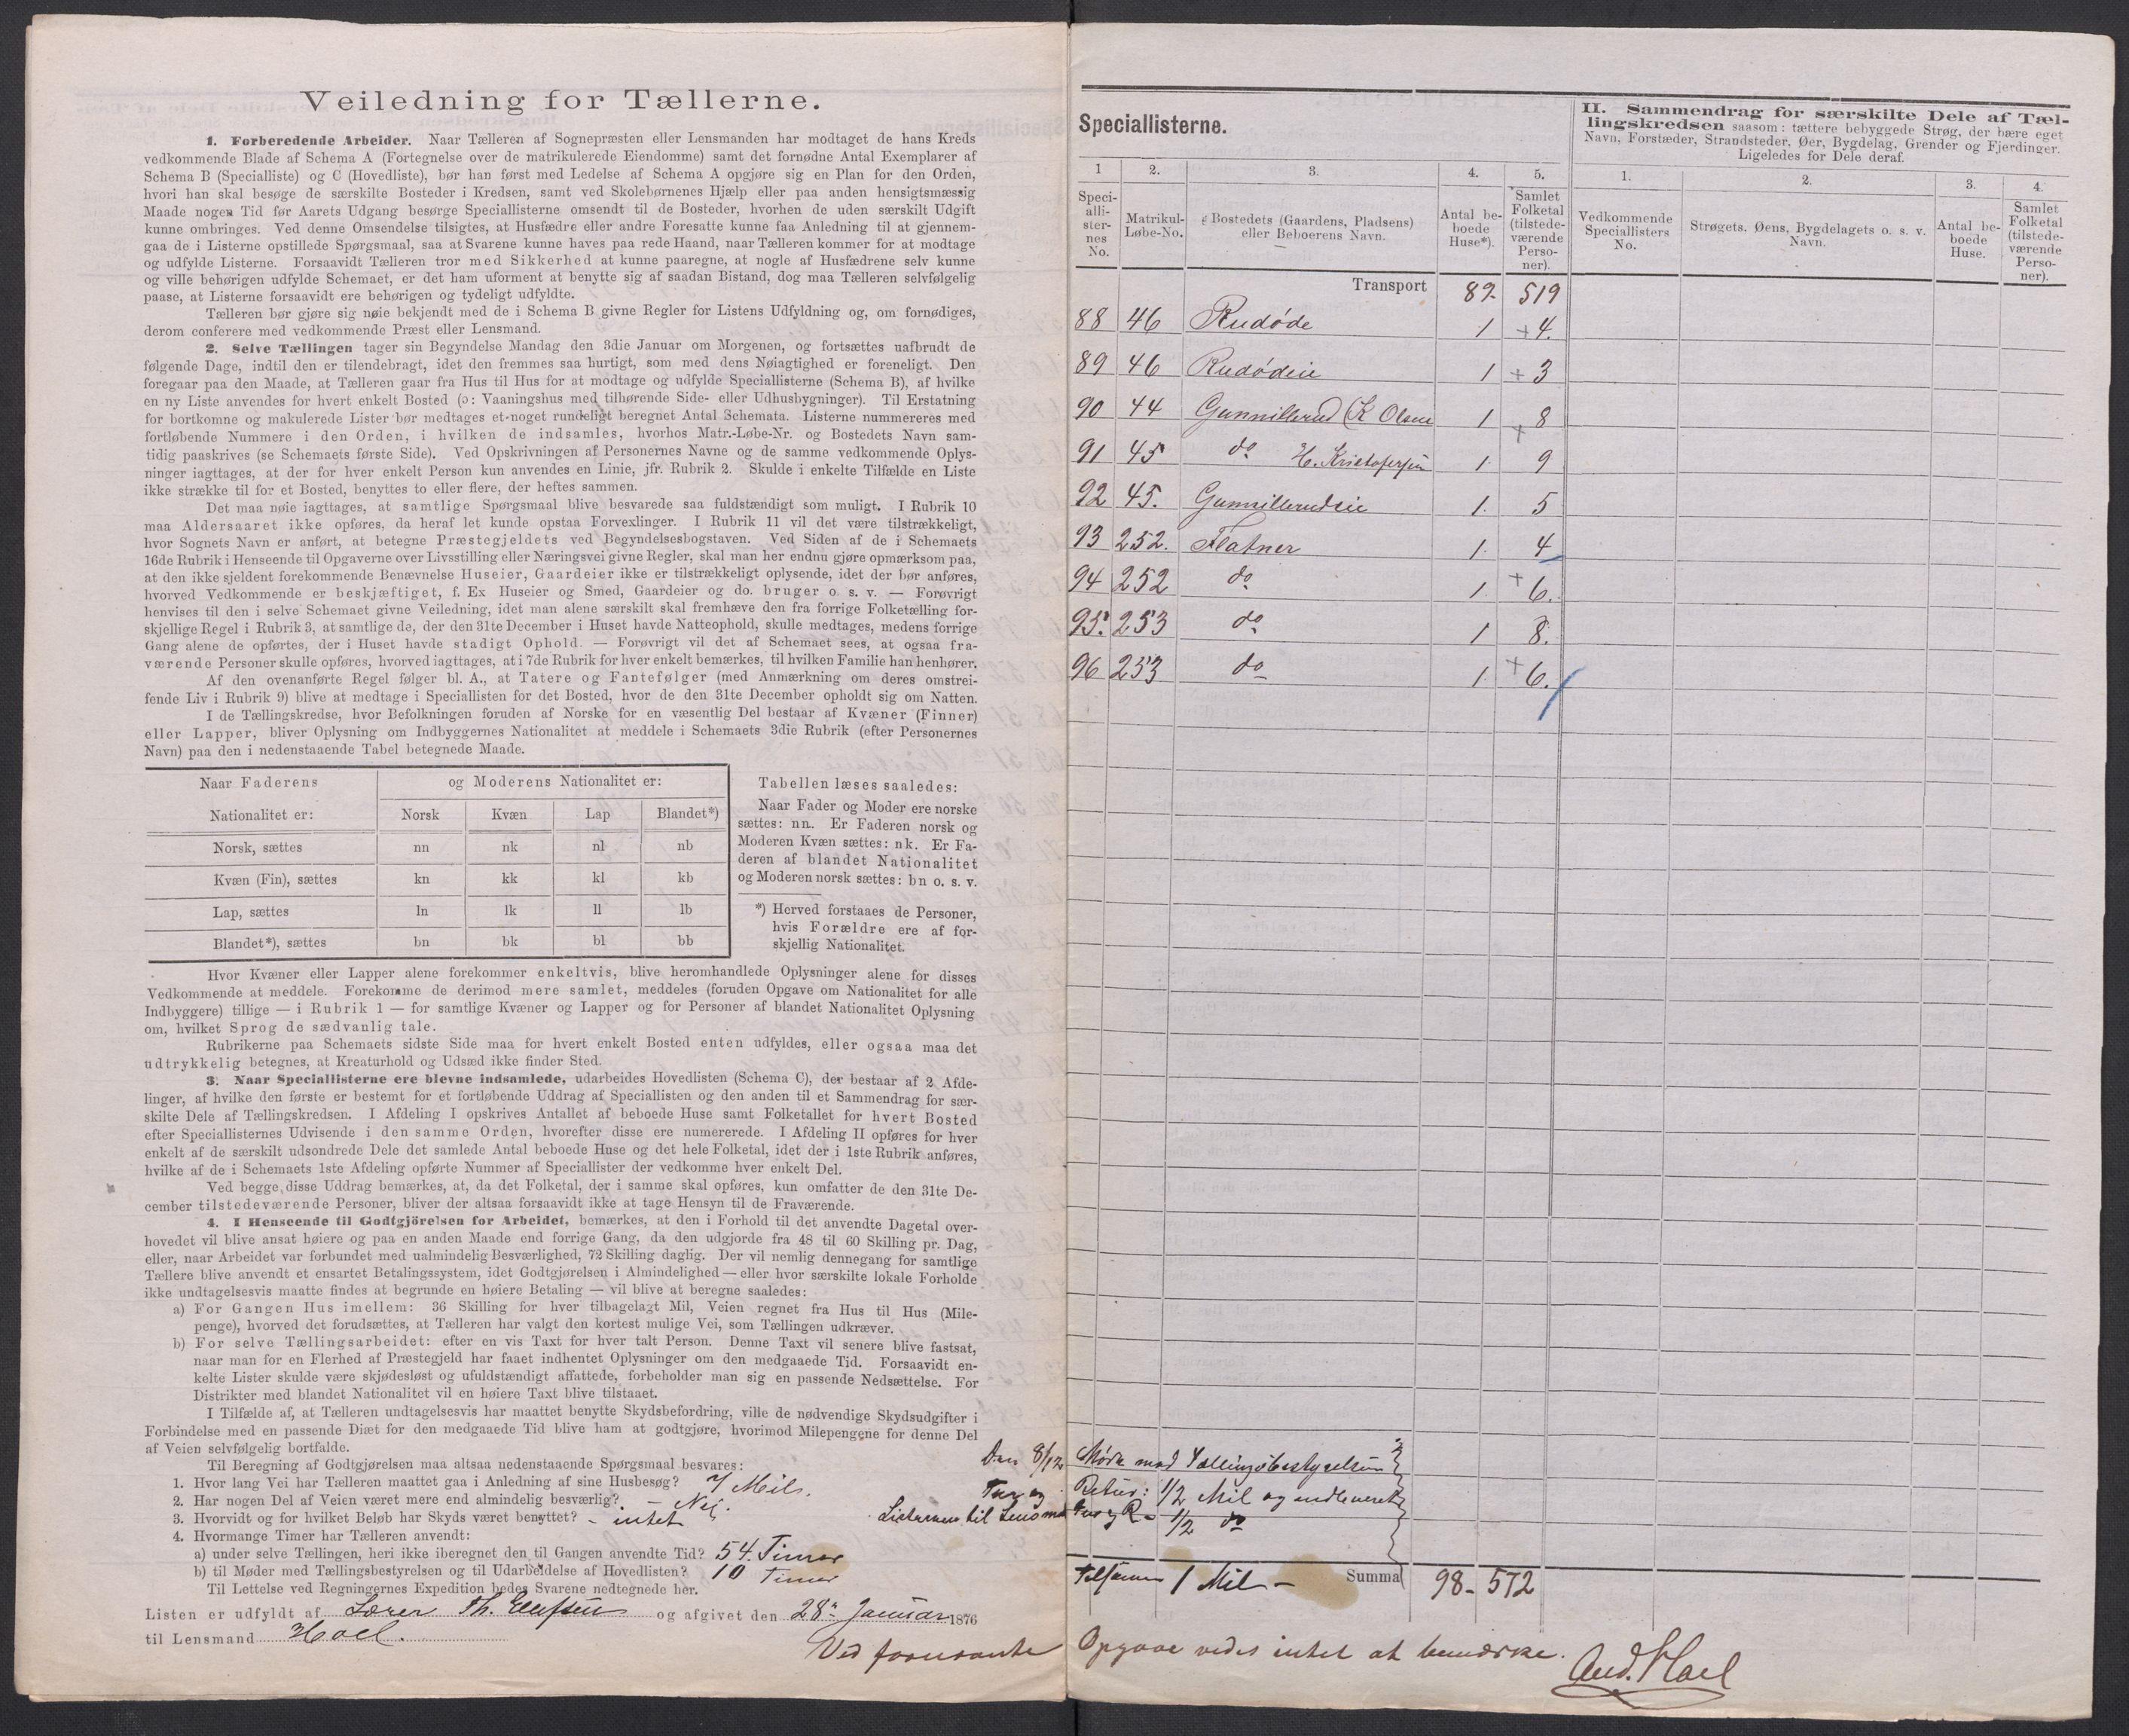 Veiledning for Tællerne.
1. Forberedende Arbeider. Naar Tælleren af Sognepræsten eller Lensmanden har modtaget de hans Kreds
vedkommende Blade af Schema A (Fortegnelse over de matrikulerede Eiendomme) samt det fornødne Antal Exemplarer af
Schema B (Specialliste) og C (Hovedliste), bør han først med Ledelse af Schema A opgjøre sig en Plan for den Orden,
hvori han skal besøge de særskilte Bosteder i Kredsen, samt ved Skolebørnenes Hjælp eller paa anden hensigtsmæssig
Maade nogen Tid før Aarets Udgang besørge Speciallisterne omsendt til de Bosteder, hvorhen de uden særskilt Udgift
kunne ombringes. Ved denne Omsendelse tilsigtes, at Husfædre eller andre Foresatte kunne faa Anledning til at gjennem-
gaa de i Listerne opstillede Spørgsmaal, saa at Svarene kunne haves paa rede Haand, naar Tælleren kommer for at modtage
og udfylde Listerne. Forsaavidt Tælleren tror med Sikkerhed at kunne paaregne, at nogle af Husfædrene selv kunne
og ville behørigen udfylde Schemaet, er det ham uforment at benytte sig af saadan Bistand, dog maa Tælleren selvfølgelig
paase, at Listerne forsaavidt ere behørigen og tydeligt udfyldte.
Tælleren bør gjøre sig nøie bekjendt med de i Schema B givne Regler for Listens Udfyldning og, om fornødiges,
derom conferere med vedkommende Præst eller Lensmand.
2. Selve Tællingen tager sin Begyndelse Mandag den 3die Januar om Morgenen, og fortsættes uafbrudt de
følgende Dage, indtil den er tilendebragt, idet den fremmes saa hurtigt, som med dens Nøiagtighed er foreneligt. Den
foregaar paa den Maade, at Tælleren gaar fra Hus til Hus for at modtage og udfylde Speciallisterne (Schema B), af hvilke
en ny Liste anvendes for hvert enkelt Bosted (ɔ: Vaaningshus med tilhørende Side- eller Udhusbygninger). Til Erstatning
for bortkomne og makulerede Lister bør medtages et noget rundeligt beregnet Antal Schemata. Listerne nummereres med
fortløbende Nummere i den Orden, i hvilken de indsamles, hvorhos Matr.-Løbe-Nr. og Bostedets Navn sam-
tidig paaskrives (se Schemaets første Side). Ved Opskrivningen af Personernes Navne og de samme vedkommende Oplys-
ninger iagttages, at der for hver enkelt Person kun anvendes en Linie, jfr. Rubrik 2. Skulde i enkelte Tilfælde en Liste
ikke strække til for et Bosted, benyttes to eller flere, der heftes sammen.
Det maa nøie iagttages, at samtlige Spørgsmaal blive besvarede saa fuldstændigt som muligt. I Rubrik 10
maa Aldersaaret ikke opføres, da heraf let kunde opstaa Forvexlinger. I Rubrik 11 vil det være tilstrækkeligt,
hvor Sognets Navn er anført, at betegne Præstegjeldets ved Begyndelsesbogstaven. Ved Siden af de i Schemaets
16de Rubrik i Henseende til Opgaverne over Livsstilling eller Næringsvei givne Regler, skal man her endnu gjøre opmærksom paa,
at den ikke sjeldent forekommende Benævnelse Huseier, Gaardeier ikke er tilstrækkeligt oplysende, idet der bør anføres,
hvorved Vedkommende er beskjæftiget, f. Ex Huseier og Smed, Gaardeier og do. bruger o. s. v. — Forøvrigt
henvises til den i selve Schemaet givne Veiledning, idet man alene særskilt skal fremhæve den fra forrige Folketælling for-
skjellige Regel i Rubrik 3, at samtlige de, der den 31te December i Huset havde Natteophold, skulle medtages, medens forrige
Gang alene de opførtes, der i Huset havde stadigt Ophold. — Forøvrigt vil det af Schemaet sees, at ogsaa fra-
værende Personer skulle opføres, hvorved iagttages, at i 7de Rubrik for hver enkelt bemærkes, til hvilken Familie han henhører.
Af den ovenanførte Regel følger bl. A., at Tatere og Fantefølger (med Anmærkning om deres omstrei-
fende Liv i Rubrik 9) blive at medtage i Speciallisten for det Bosted, hvor de den 31te December opholdt sig om Natten.
I de Tællingskredse, hvor Befolkningen foruden af Norske for en væsentlig Del bestaar af Kvæner (Finner)
eller Lapper, bliver Oplysning om Indbyggernes Nationalitet at meddele i Schemaets 3die Rubrik (efter Personernes
Navn) paa den i nedenstaaende Tabel betegnede Maade.
Naar Faderens og Moderens Nationalitet er:
Nationalitet er: Norsk Kvæn Lap Blandet*)
Norsk, sættes nn nk nl nb
Kvæn (Fin), sættes kn kk kl kb
Lap, sættes ln lk ll lb
Blandet*), sættes bn bk bl bb
Tabellen læses saaledes:
Naar Fader og Moder ere norske
sættes: nn. Er Faderen norsk og
Moderen Kvæn sættes: nk. Er Fa-
deren af blandet Nationalitet
og Moderen norsk sættes: bn o. s. v.
*) Herved forstaaes de Personer,
hvis Forældre ere af for-
skjellig Nationalitet.
Hvor Kvæner eller Lapper alene forekommer enkeltvis, blive heromhandlede Oplysninger alene for disses
Vedkommende at meddele. Forekomme de derimod mere samlet, meddeles (foruden Opgave om Nationalitet for alle
Indbyggere) tillige — i Rubrik 1 — for samtlige Kvæner og Lapper og for Personer af blandet Nationalitet Oplysning
om, hvilket Sprog de sædvanlig tale.
Rubrikerne paa Schemaets sidste Side maa for hvert enkelt Bosted enten udfyldes, eller ogsaa maa det
udtrykkelig betegnes, at Kreaturhold og Udsæd ikke finder Sted.
3. Naar Speciallisterne ere blevne indsamlede, udarbeides Hovedlisten (Schema C), der bestaar af 2 Afde-
linger, af hvilke den første er bestemt for et fortløbende Uddrag af Speciallisten og den anden til et Sammendrag for sær-
skilte Dele af Tællingskredsen. I Afdeling I opskrives Antallet af beboede Huse samt Folketallet for hvert Bosted
efter Speciallisternes Udvisende i den samme Orden, hvorefter disse ere numererede. I Afdeling II opføres for hver
enkelt af de særskilt udsondrede Dele det samlede Antal beboede Huse og det hele Folketal, idet der i 1ste Rubrik anføres,
hvilke af de i Schemaets 1ste Afdeling opførte Nummer af Speciallister der vedkomme hver enkelt Del.
Ved begge disse Uddrag bemærkes, at, da det Folketal, der i samme skal opføres, kun omfatter de den 31te De-
cember tilstedeværende Personer, bliver der altsaa forsaavidt ikke at tage Hensyn til de Fraværende.
4. I Henseende til Godtgjörelsen for Arbeidet, bemærkes, at den i Forhold til det anvendte Dagetal over-
hovedet vil blive ansat høiere og paa en anden Maade end forrige Gang, da den udgjorde fra 48 til 60 Skilling pr. Dag,
eller, naar Arbeidet var forbundet med ualmindelig Besværlighed, 72 Skilling daglig. Der vil nemlig dennegang for samtlige
Tællere blive anvendt et ensartet Betalingssystem, idet Godtgjørelsen i Almindelighed — eller hvor særskilte lokale Forholde
ikke undtagelsesvis maatte findes at begrunde en høiere Betaling — vil blive at beregne saaledes:
a) For Gangen Hus imellem: 36 Skilling for hver tilbagelagt Mil, Veien regnet fra Hus til Hus (Mile-
penge), hvorved det forudsættes, at Tælleren har valgt den kortest mulige Vei, som Tællingen udkræver.
b) For selve Tællingsarbeidet: efter en vis Taxt for hver talt Person. Denne Taxt vil senere blive fastsat,
naar man for en Flerhed af Præstegjeld har faaet indhentet Oplysninger om den medgaaede Tid. Forsaavidt en-
kelte Lister skulde være skjødesløst og ufuldstændigt affattede, forbeholder man sig en passende Nedsættelse. For
Distrikter med blandet Nationalitet vil en høiere Taxt blive tilstaaet.
I Tilfælde af, at Tælleren undtagelsesvis har maattet benytte Skydsbefordring, ville de nødvendige Skydsudgifter i
Forbindelse med en passende Diæt for den medgaaede Tid blive ham at godtgjøre, hvorimod Milepengene for denne Del
af Veien selvfølgelig bortfalde.
Til Beregning af Godtgjørelsen maa altsaa nedenstaaende Spørgsmaal besvares:
1. Hvor lang Vei har Tælleren maattet gaa i Anledning af sine Husbesøg? 7 Mil.
2. Har nogen Del af Veien været mere end almindelig besværlig? — Nei.
3. Hvorvidt og for hvilket Beløb har Skyds været benyttet? - intet
4. Hvormange Timer har Tælleren anvendt:
a) under selve Tællingen, heri ikke iberegnet den til Gangen anvendte Tid? 54. Timer
b) til Møder med Tællingsbestyrelsen og til Udarbeidelse af Hovedlisten? 10 Timer
Til Lettelse ved Regningernes Expedition bedes Svarene nedtegnede her.
Listen er udfyldt af Lærer Th. og afgivet den 28de Januar 1876
til Lensmand Hoel.
Speciallisterne.
1 2. 3. 4. 5.
Speci-
alli-
ster-
nes
No.
Matrikul-
Løbe-No.
Bostedets (Gaardens, Pladsens)
eller Beboerens Navn.
Antal be-
boede
Huse*).
Samlet
Folketal
(tilstede-
værende
Perso-
ner).
Transport 89. 519
88 46 Rudøde 1 +4.
89 46 Rudødeie 1 +3
90 44 Gunnillerud (K Olsen 1 8
91 45 do H. Kristofersen 1. + 9
92 45. Gunnillerudeie 1. 5
93 252. Flatner 1. 4
94 252 do 1. +6.
95. 253 do 1 8.
96 253 do 1. +6.
Den 8/12 Møde med Tællingsbestyrelsen
Tur og Retur: 1/2 Mil og indleveret
Listerne til Lensmd Tur og R - 1/2 do
Tilsammen 1 Mil - Summa 98 - 572
II. Sammendrag for særskilte Dele af Tæl-
lingskredsen saasom: tættere bebyggede Strøg, der bære eget
Navn, Forstæder, Strandsteder, Øer, Bygdelag, Grender og Fjerdinger.
Ligeledes for Dele deraf.
1. 2. 3. 4.
Vedkommende
Speciallisters
No.
Strøgets, Øens, Bygdelagets o. s. v.
Navn.
Antal be-
boede
Huse.
Samlet
Folketal
(tilstede-
værende
Perso-
ner).
Ved Opgave vides intet at bemærke.
And. Hoel